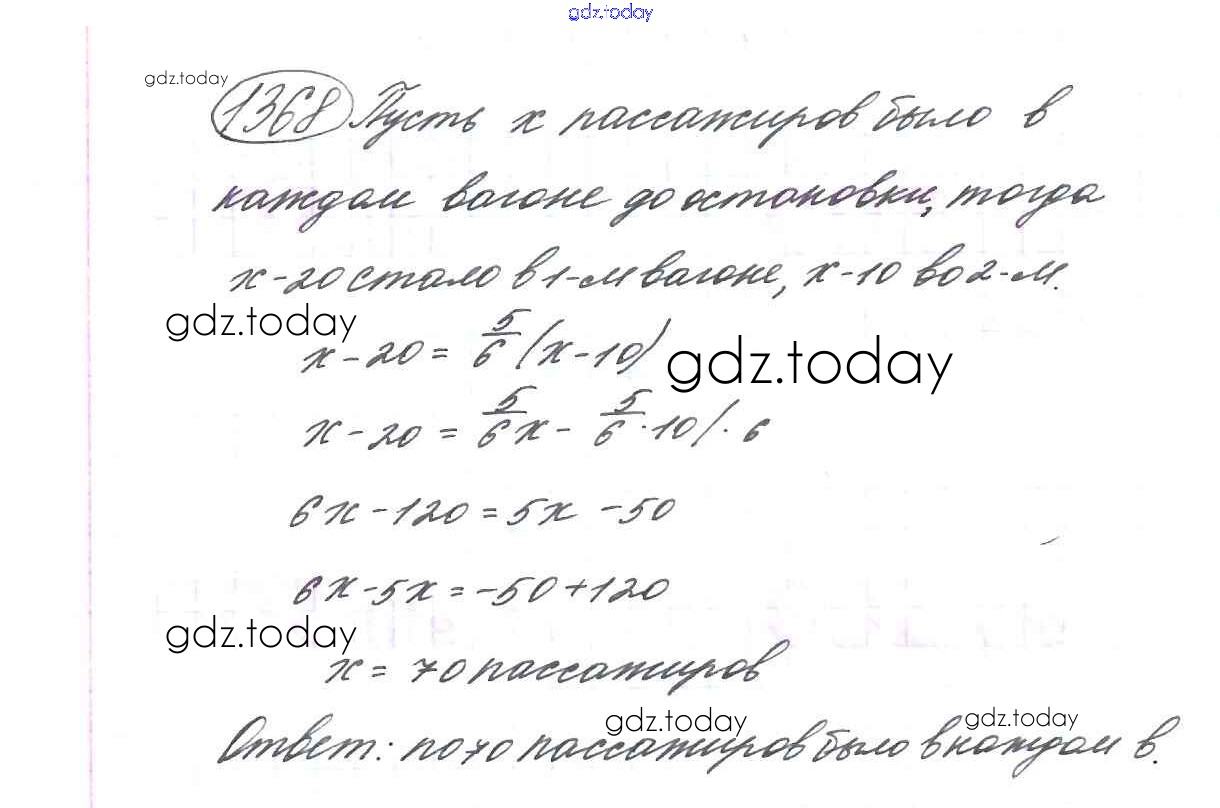 gdz.today
gdz.today
1368 Пусть x пассажиров было в
каждом вагоне до остановки, тогда
x-20 стало в 1-м вагоне, x-10 во 2-м.
gdz.today
x-20 = 5/6 (x-10)
gdz.today
x-20 = 5/6 x - 5/6 · 10 / · 6
6x-120 = 5x - 50
6x-5x = -50+120
gdz.today
x = 70 пассажиров
gdz.today
gdz.today
Ответ: по 70 пассажиров было в каждом в.